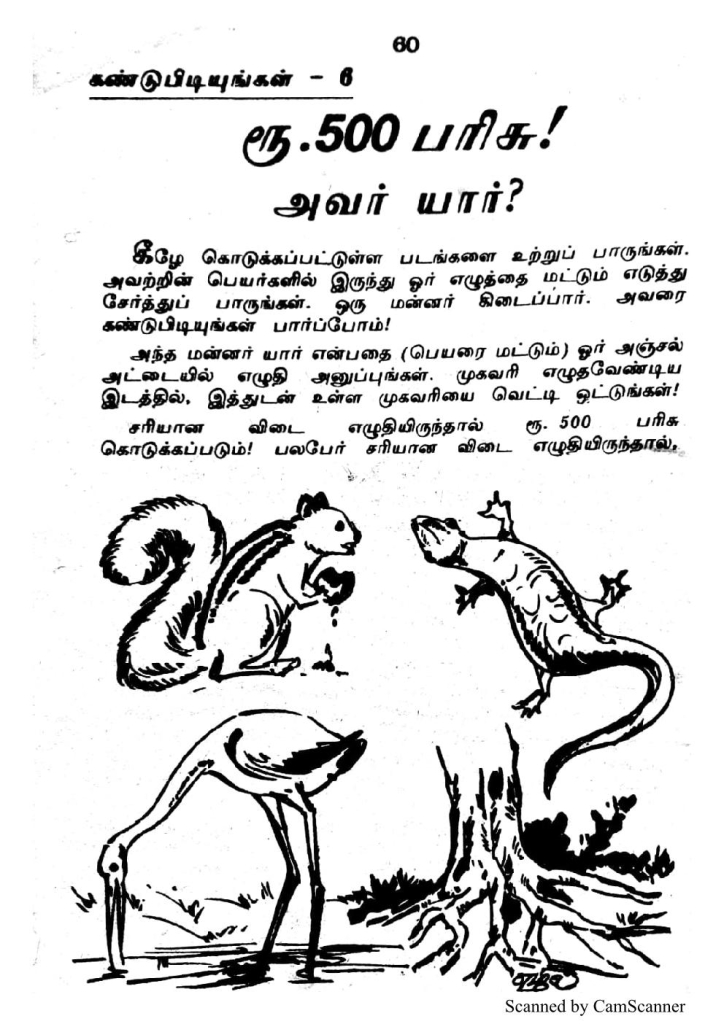 60
கண்டுபிடியுங்கள் - 6
ரூ.500 பரிசு!
அவர் யார்?
கீழே கொடுக்கப்பட்டுள்ள படங்களை உற்றுப் பாருங்கள்.
அவற்றின் பெயர்களில் இருந்து ஓர் எழுத்தை மட்டும் எடுத்து
சேர்த்துப் பாருங்கள். ஒரு மன்னர் கிடைப்பார். அவரை
கண்டுபிடியுங்கள் பார்ப்போம்!
அந்த மன்னர் யார் என்பதை (பெயரை மட்டும்) ஓர் அஞ்சல்
அட்டையில் எழுதி அனுப்புங்கள். முகவரி எழுதவேண்டிய
இடத்தில், இத்துடன் உள்ள முகவரியை வெட்டி ஒட்டுங்கள்!
சரியான விடை எழுதியிருந்தால் ரூ. 500 பரிசு
கொடுக்கப்படும்! பலபேர் சரியான விடை எழுதியிருந்தால்,
Scanned by CamScanner